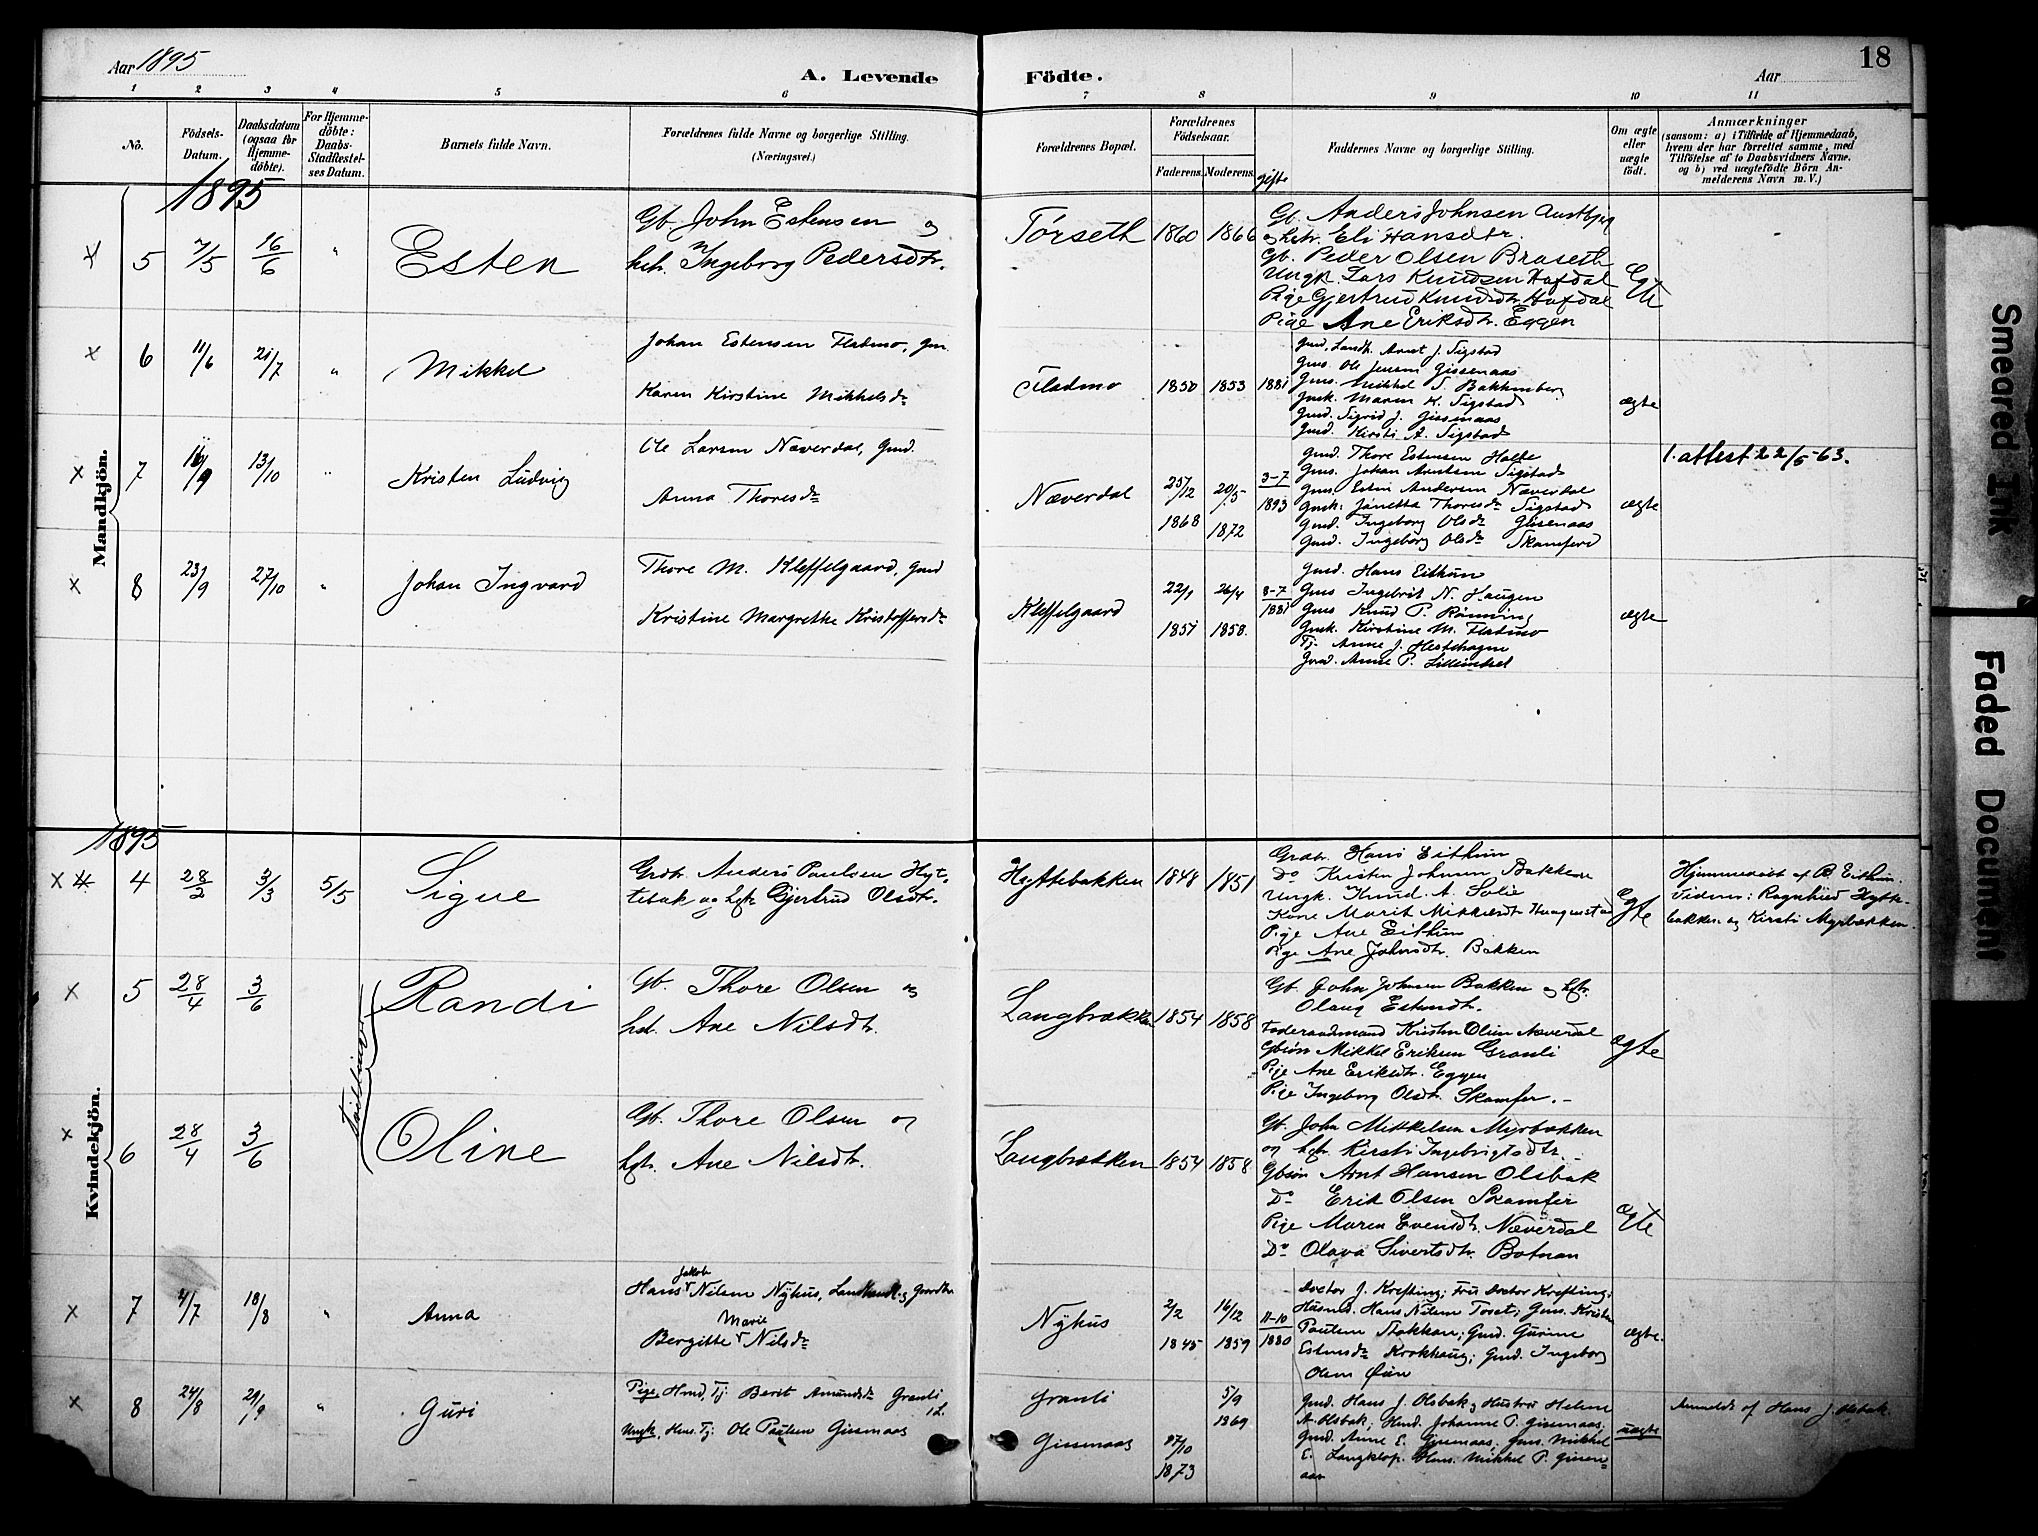 Aar 1895
A. Levende Födte.
Aar
18
1 2 3 4 5 6 7 8 9 10 11
No.
Födsels-
Datum.
Daabsdatum
(ogsaa for
Hjemme-
döbte).
For Hjemme-
döbte:
Daabs-
Stadfæstel-
ses Datum.
Barnets fulde Navn.
Forældrenes fulde Navne og borgerlige Stilling.
(Næringsvei.)
Forældrenes Bopæl.
Forældrenes
Födselsaar.
Faderens. Moderens.
gifte
Faddernes Navne og borgerlige Stilling.
Om ægte
eller
uægte
födt.
Anmærkninger
(saasom: a) i Tilfælde af Hjemmedaab,
hvem der har forrettet samme, med
Tilföielse af to Daabsvidners Navne,
og b) ved uægtefödte Börn An-
melderens Navn m. V.)
Mandkjön.
1895
5 7/5 16/6 " Esten
Gb. John Estensen og
Ingeborg Pedersdtr.
Törseth 1860 1866
Gb. Anders Johnsen
og Eli Hansdtr.
Gb. Peder Olsen Braseth
Ungk. Lars Knudsen Hafdal
Pige Gjertrud Knudsdtr. Hafdal
Pige Ane Eriksdtr. Eggen
Egte
6 11/6 21/7 " Mikkel
Johan Estensen Fladmo, Gm.
Karen Kirstine Mikkelsdr
Fladmo 1850 1853 1881
Gmd. Landh. Arnt J. Sigstad
Gms. Ole Jensen Gissenaas
Gms. Mikkel T. Bakkenberg
Gmk. Maren K. Sigstad
Gmd. Sigrid J. Gissenaas
Gmd. Kirsti A. Sigstad
ægte
7 16/9 13/10 " Kristen Ludvig
Ole Larsen Næverdal, Gmd.
Anna Thoresdr
Næverdal 25/12 1868 20/5 1872 3-7 1893
Gmd. Thore Estensen Holte
Gms. Johan Arntsen Sigstad
Gms. Esten Andersen Næverdal
Gmk. Janetta Thoresdr Sigstad
Gmd. Ingeborg Olsdr Gissenaas
Gmd. Ingeborg Olsdr Skamferd
ægte
1. attest 22/5-63.
8 23/9 27/10 " Johan Ingvard
Thore M. Kleffelgaard, Gmd
Kristine Margrethe Kristoffersdr
Kleffelgaard 22/1 1851 26/4 1858. 8-7 1881
Gmd. Hans Eithun
Gms Ingebrit N. Haugen
Gms Knud P. Rönning
Gmk. Kirstine M. Fladmo
Tj. Anne J. Hestehagen
Gmd. Anne P. Lilleindset
ægte
Kvindekjön.
1895
4 28/2 3/3 5/5 Signe
Grdr. Anders Paulsen Hyt-
tebak og Gjertrud Olsdtr.
Hyttebakken 1848 1851
Grdr. Hans Eithun
Do Kristen Johnsen Bakken
Ungk. Knud A. Solie
Kone Marit Mikkelsdtr
Pige Ane Eithun
Pige Ane Johnsdtr. Bakken
Egte
Hjemmedöbt af B. Eithun.
Vidner: Ragnhild Hytte-
bakken og Kirsti Myrbækken.
Tvillinger
5 28/4 3/6 Randi
Gb. Thore Olsen og
Ane Nilsdtr.
Langbrækken 1854 1858
Gb. John Johnsen Bakken og
Olaug Estensdtr.
Föderaadmand Kristen Olsen Næverdal
Gbsön Mikkel Eriksen Granli
Pige Ane Eriksdtr. Eggen
Pige Ingeborg Olsdtr. Skamfer.
ægte
6 28/4 3/6 Oline
Gb. Thore Olsen og
Ane Nilsdtr.
Langbrækken 1854 1858
Gb. John Mikkelsen Myrbækken
og Kirsti Ingebrigtsdtr.
Gbsön Arnt Hansen Olsbak
Do Erik Olsen Skamfer
Pige Maren Evensdtr. Næverdal
Do Olava Sivertsdtr. Botnan
ægte
7 4/7 18/8 " Anna
Hans Jakob Nilsen Nyhus, Landhandl. og Gaardbr
Bergitte Marie Nilsdr
Nyhus 2/2 1845 16/12 1859 11-10 1880
Doctor J. Krefting; Fru Doctor Krefting;
Husmd. Hans Nilsen Toset; Gms. Kristen
Paulsen Stokkan; Gmd. Gurine
Estensdr Krokhaug; Gmd. Ingeborg
Olsen Öien
ægte.
8 24/8 29/9 " Guri
Pige, Hmd, Tj: Berit Amundsdr Granli
Ungk, Hms. Tj: Ole Paulsen Gissenaas
Granli 5/9 1869
Gissenaas 27/10 1873
Gmd. Hans J. Olsbak; Hustru Helene
A. Olsbak; Hmd. Johanne P. Gissenaas;
Gmd. Anne E. Gissenaas; Gms. Mikkel
E. Langklop. Hms. Mikkel P. Gissen-
aas
uægte
Anmeldt af Hans J. Olsbak.
Smeared Ink
Faded Document